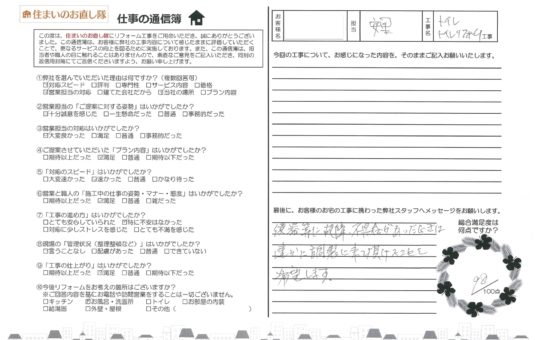 住まいのお直し隊
仕事の通信簿
この度は、住まいのお直し隊にリフォーム工事をご用命いただき、誠にありがとうござ
いました。この通信簿は、お客様に弊社の工事内容について感じたままに評価していただく
ことで、更なるサービスの向上を図るために実施しております。また、この通信簿は、担
当者や職人の目に触れることはありませんので、率直なご意見をご記入いただき、同封の
返信用封筒にてご返信くださいますよう、お願い申し上げます。
①弊社を選んでいただいた理由は何ですか？（複数回答可）
☑対応スピード □評判 □専門性 □サービス内容 □価格
☑営業担当の対応 □建てた会社だから □当社の場所 □プラン内容
②営業担当の「ご提案に対する姿勢」はいかがでしたか？
☑十分誠意を感じた □一生懸命だった □普通 □事務的だった
③営業担当の対応はいかがでしたか？
☑大変良かった □満足 □普通 □事務的だった
④ご提案させていただいた「プラン内容」はいかがでしたか？
□期待以上だった ☑満足 □普通 □期待以下だった
⑤「対応のスピード」はいかがでしたか？
□大変速かった ☑速かった □普通 □かなり待った
⑥営業と職人の「施工中の仕事の姿勢・マナー・態度」はいかがでしたか？
□期待以上だった ☑満足 □普通 □雑だった
⑦「工事の進め方」はいかがでしたか？
□とても安心していられた ☑特に不安はなかった
□対応に少しストレスを感じた □とても不満を感じた
⑧現場の「管理状況（整理整頓など）」はいかがでしたか？
□言うことなし ☑配慮があった □普通 □できていない
⑨「工事の仕上がり」はいかがでしたか？
□期待以上だった ☑満足 □普通 □期待以下だった
⑩今後リフォームをお考えの箇所はございますか？
※ご回答内容を基にお電話や訪問営業をすることは一切ございません。
□キッチン ☑お風呂・洗面所 □トイレ □お部屋の内装
□給湯器 □外壁・屋根 □その他（ ）
お客様名
担当
工事名
トイレ
トイレリフォーム工事
今回の工事について、お感じになった内容を、そのままご記入お願いいたします。
最後に、お客様のお宅の工事に携わった弊社スタッフへメッセージをお願いします。
便器等に故障、不具合があったときは
速かに調整に来て頂けることを
希望します。
総合満足度は
何点ですか？
98
100点